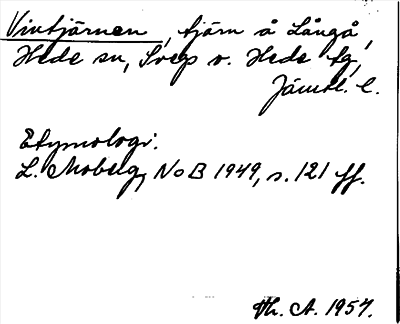 Vintjärnen, tjärn å Långå,
Hede sn, Svegs o. Hede tg,
Jämtl. l.
Etymologi:
L. Moberg, NoB 1949, s. 121 ff.
Th. A. 1957.